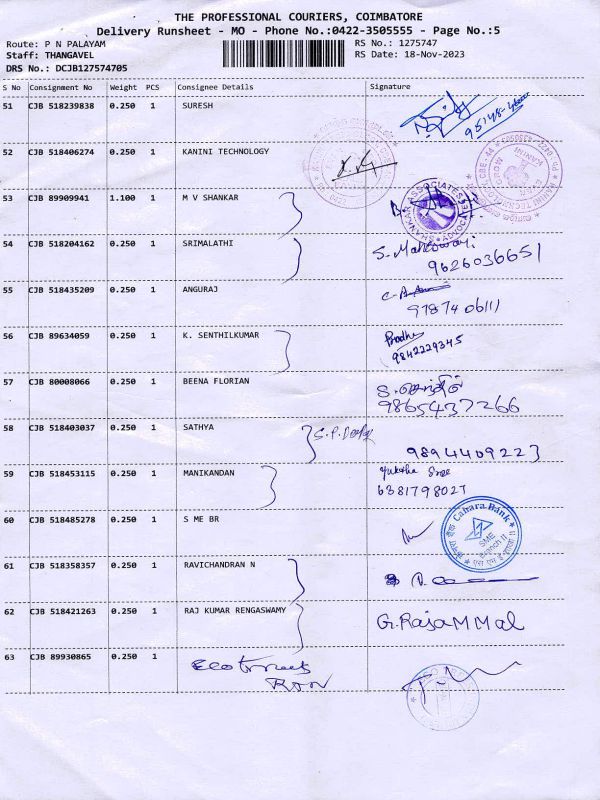 THE PROFESSIONAL COURIERS, COIMBATORE
Delivery Runsheet - MO - Phone No.:0422-3505555 - Page No.:5
Route: P N PALAYAM
RS No.: 1275747
Staff: THANGAVEL
RS Date: 18-Nov-2023
DRS No.: DCJB127574705
S No Consignment No Weight PCS Consignee Details Signature
51 CJB 518239838 0.250 1 SURESH
52 CJB 518406274 0.250 1 KANINI TECHNOLOGY
53 CJB 89909941 1.100 1 M V SHANKAR
SHANKAR ASSOCIATES
ADVOCATES
54 CJB 518204162 0.250 1 SRIMALATHI S. Maheswari
9626036651
55 CJB 518435209 0.250 1 ANGURAJ
9787406111
56 CJB 89634059 0.250 1 K. SENTHILKUMAR
9842229345
57 CJB 80008066 0.250 1 BEENA FLORIAN
9865437266
58 CJB 518403037 0.250 1 SATHYA
9894409223
59 CJB 518453115 0.250 1 MANIKANDAN
6381798027
60 CJB 518485278 0.250 1 S ME BR
Canara Bank
SME
Branch II
61 CJB 518358357 0.250 1 RAVICHANDRAN N
62 CJB 518421263 0.250 1 RAJ KUMAR RENGASWAMY G.RajaMMal
63 CJB 89930865 0.250 1